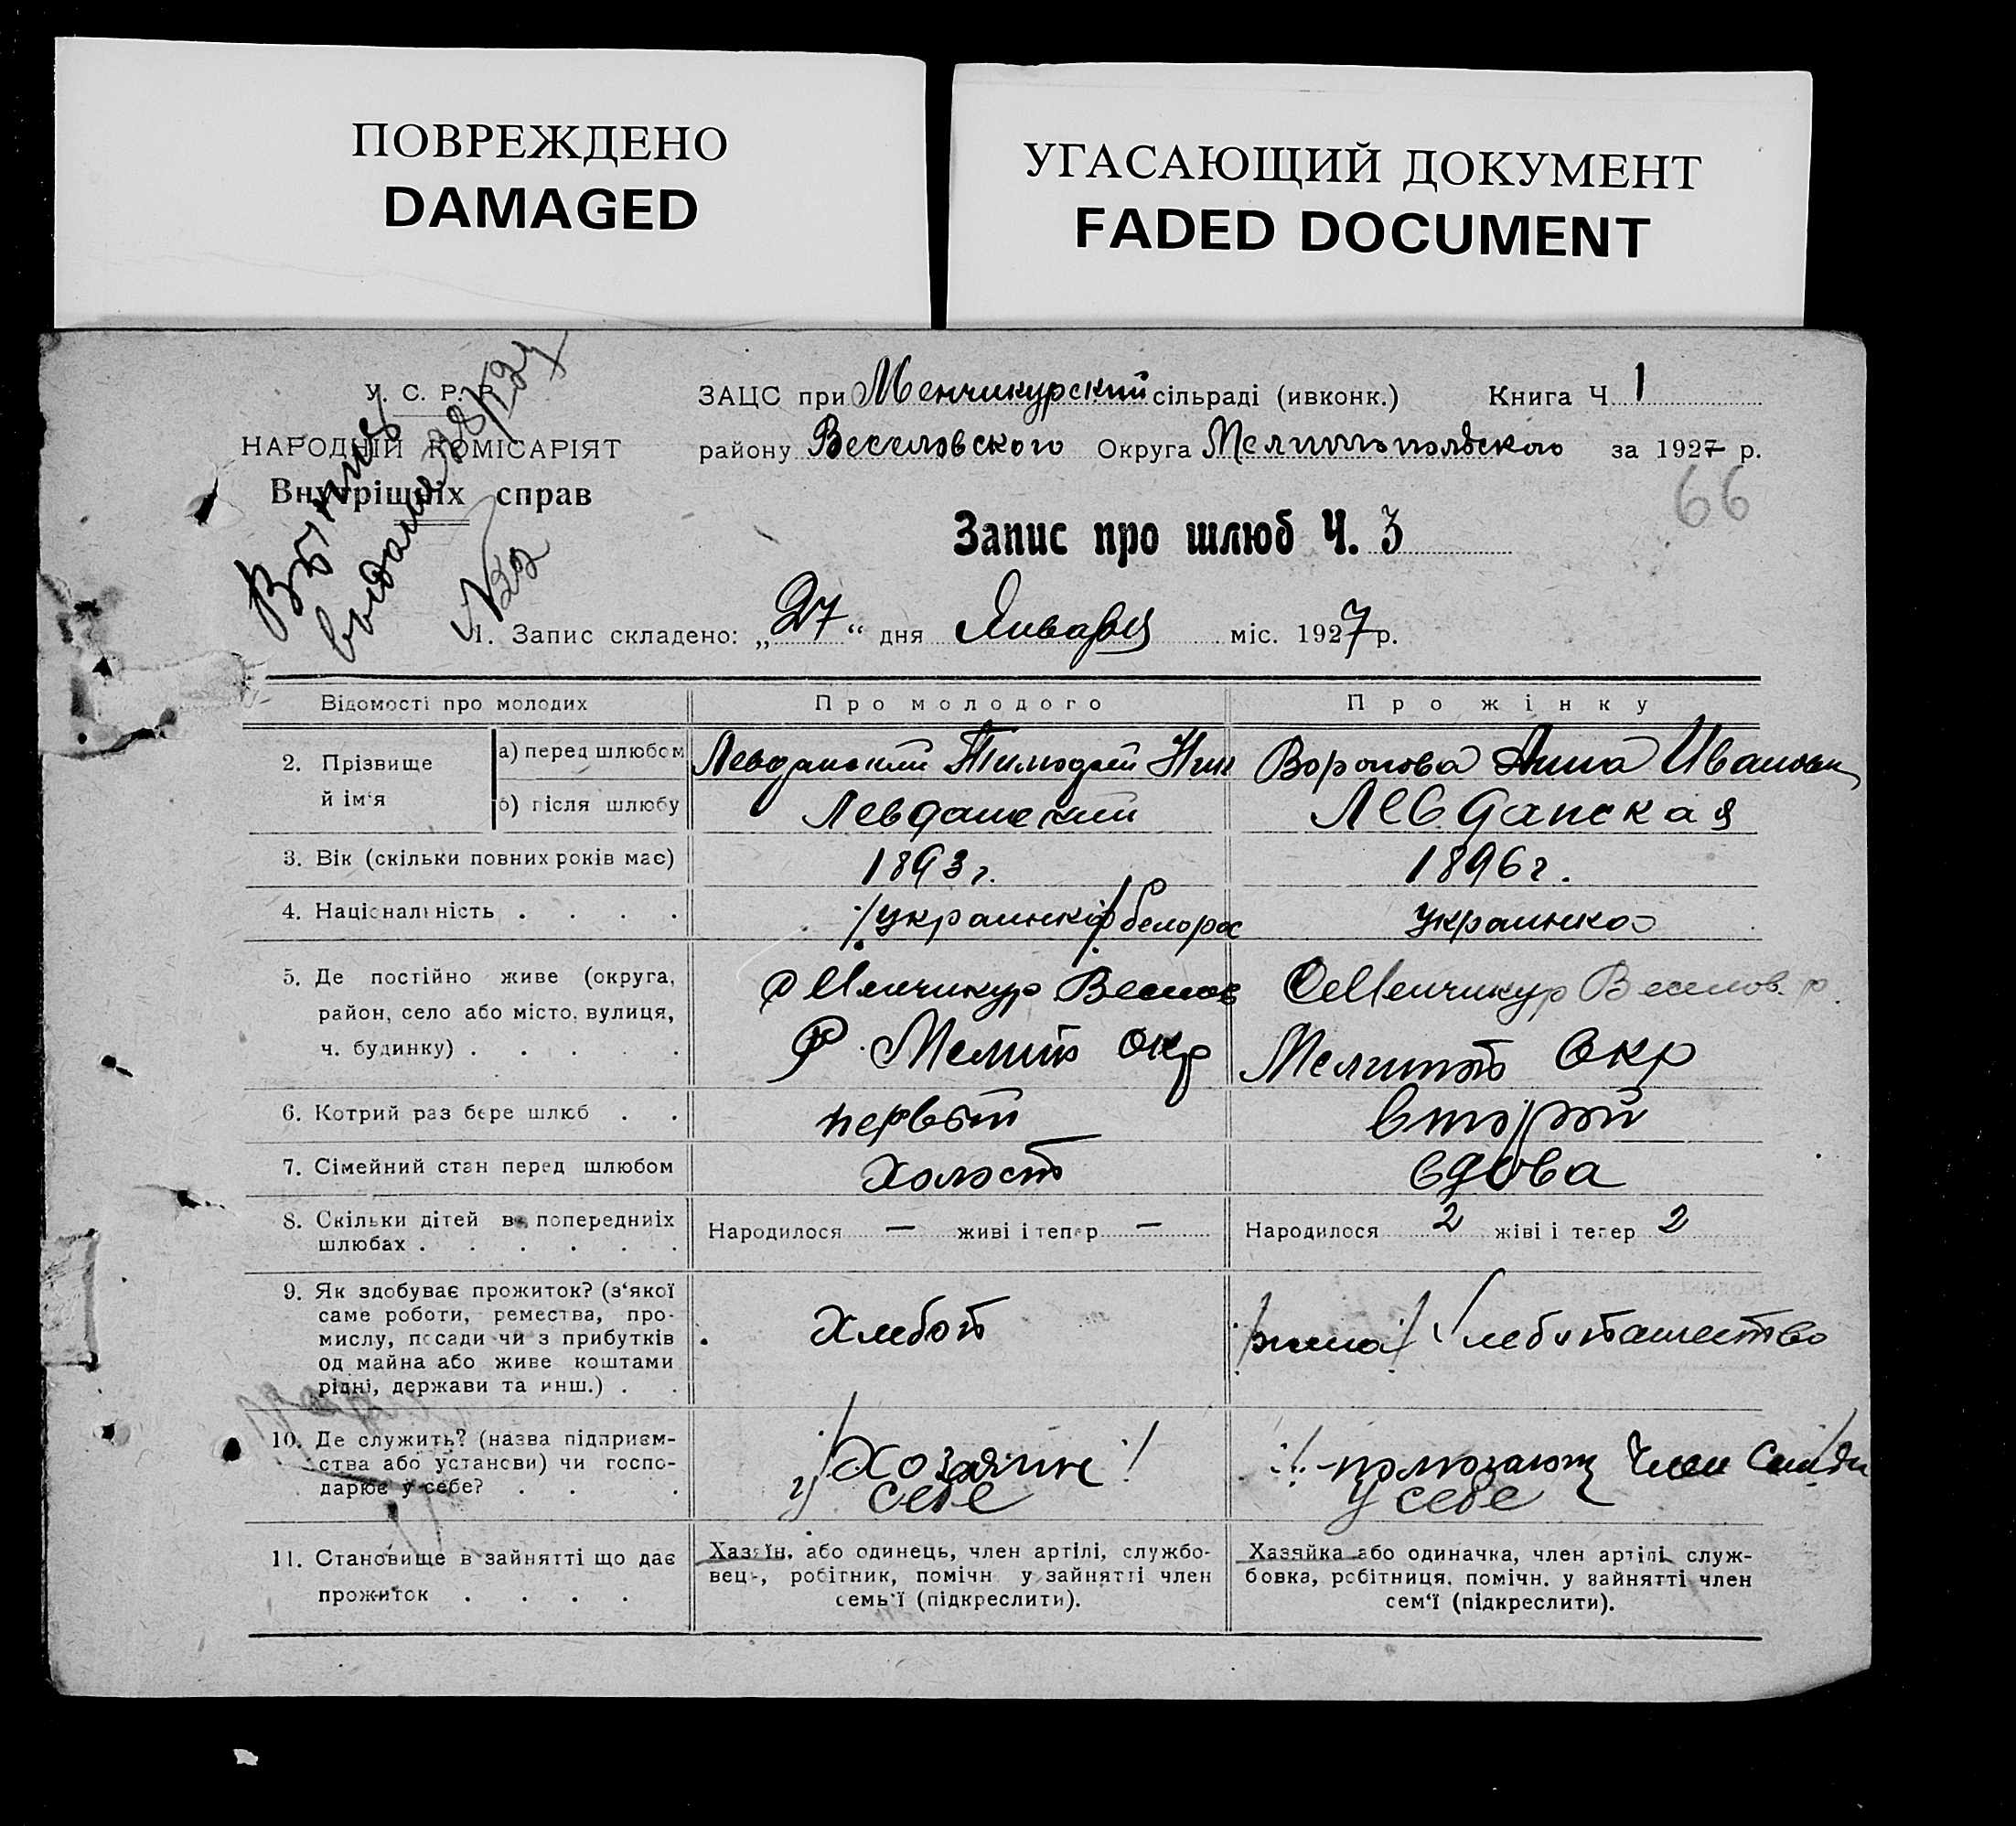 ПОВРЕЖДЕНО
DAMAGED
УГАСАЮЩИЙ ДОКУМЕНТ
FADED DOCUMENT
У. С. Р. Р.
НАРОДНІЙ КОМІСАРІЯТ
Внутрішніх справ
выдана
ЗАЦС при Менчикурский сільраді (ивконк.) Книга Ч. 1
району Веселовского Округа Мелитопольского за 1927 р.
66
Запис про шлюб Ч. 3
1. Запис складено: „27“ дня Января міс. 1927 р.
Відомості про молодих Про молодого Про жінку
2. Прізвище й ім'я
а) перед шлюбом Левданский Тимофей Ник Воронова Анна Ивановн
б) після шлюбу Левданский Левданская
3. Вік (скільки повних років має) 1893 г. 1896 г.
4. Національність . . . . украинкф белорос украинка
5. Де постійно живе (округа, с Менчикур Веселов С Менчикур Веселов. р.
район, село або місто, вулиця,
ч. будинку) . . . . . Р. Мелит окр Мелитоп Окр
6. Котрий раз бере шлюб . . первый второй
7. Сімейний стан перед шлюбом Холост вдова
8. Скільки дітей в попередніх Народилося — живі і тепер — Народилося 2 жіві і тепер 2
шлюбах . . . . . .
9. Як здобуває прожиток? (з'якої
саме роботи, ремества, про-
мислу, посади чи з прибутків Хлебоп Хлебопашество
од майна або живе коштами
рідні, держави та инш.) . .
10. Де служить? (назва підприєм-
ства або установи) чи госпо- Хозяин помогающ Член Семьи
дарює у себе? . . . у себе у себе
11. Становище в зайнятті що дає Хазяїн, або одинець, член артілі, службо- Хазяйка або одиначка, член артілі, служ-
прожиток . . . . вець, робітник, помічн. у зайнятті член бовка, робітниця, помічн. у зайнятті член
семь'ї (підкреслити). сем'ї (підкреслити).